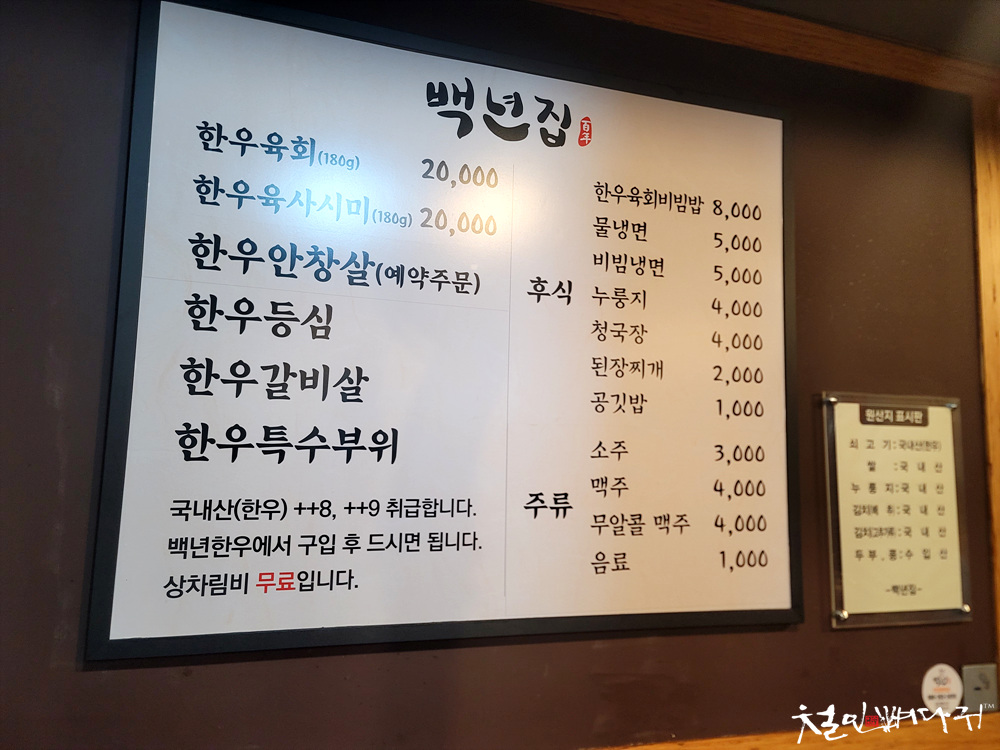 백년집
百年
한우육회(180g) 20,000
한우육사시미(180g) 20,000
한우안창살(예약주문)
한우등심
한우갈비살
한우특수부위
국내산(한우) ++8, ++9 취급합니다.
백년한우에서 구입 후 드시면 됩니다.
상차림비 무료입니다.
후식
한우육회비빔밥 8,000
물냉면 5,000
비빔냉면 5,000
누룽지 4,000
청국장 4,000
된장찌개 2,000
공깃밥 1,000
주류
소주 3,000
맥주 4,000
무알콜 맥주 4,000
음료 1,000
원산지 표시판
쇠고기:국내산(한우)
쌀:국내산
누룽지:국내산
김치(배추):국내산
김치(고춧가루):국내산
두부,콩:수입산
-백년집-
철민뼈다귀™